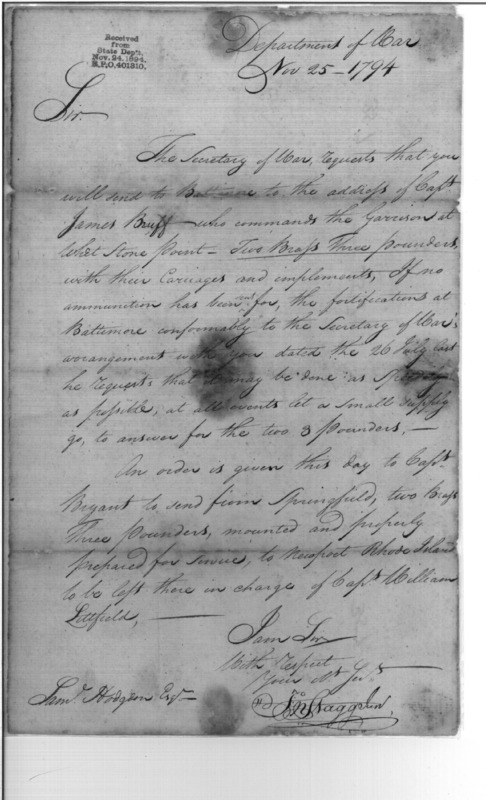 Received
from
State Dep't.
Nov. 24. 1894.
R.P.O. 401310.
Department of War
Nov 25 - 1794
Sir
The Secretary of War, requests that you
will send to Baltimore to the address of Capt
James Bruff - who commands the Garrison at
Whet Stone Point - Two Brass Three pounders,
with their Carriages and implements, If no
ammunition has been sent for, the fortifications at
Baltimore conformably to the Secretary of War's
arrangements with you dated the 26 July last
he requests that it may be done as
as possible, at all events let a small supply
go, to answer for the two 3 Pounders, -
An order is given this day to Capt.
Bryant to send from Springfield, two Brass
Three Pounders, mounted and properly
prepared for service, to Newport Rhode Island
to be left there in charge of Capt William
Littlefield, -
I am Sir
With Respect
Your Obt Servt
Jno Stagg Jun
Saml Hodgdon Esqr